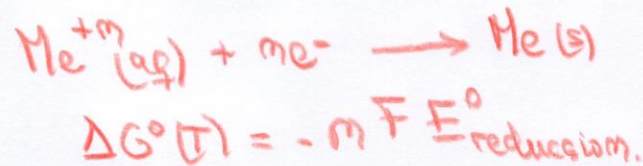 Me⁺ⁿ(aq) + ne⁻ ⟶ Me(s)
ΔG°(T) = -n F E°reduccion